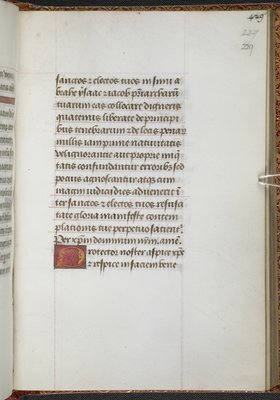 429
229
239
sanctos ⁊ electos tuos in sinu a
brahe ysaac ⁊ iacob patriarcharū
tuarum eas collocare digneris
quatenus liberate de principi
bus tenebrarum ⁊ de locis penar
nullis iam prime natiuitatis
vel ignorantie aut proprie iniq̄
tatis confundantur erroribꝰ sed
potius agnoscantur atqꝫ cum
magni iudicii dies aduenerit ī
ter sanctos ⁊ electos tuos resusci
tate gloria manifeste contem
plationis tue perpetuo satient᷑.
Per xp̄m dominum nr̄m. amē.
Protector noster aspice xp̄e
⁊ respice in faciem bene